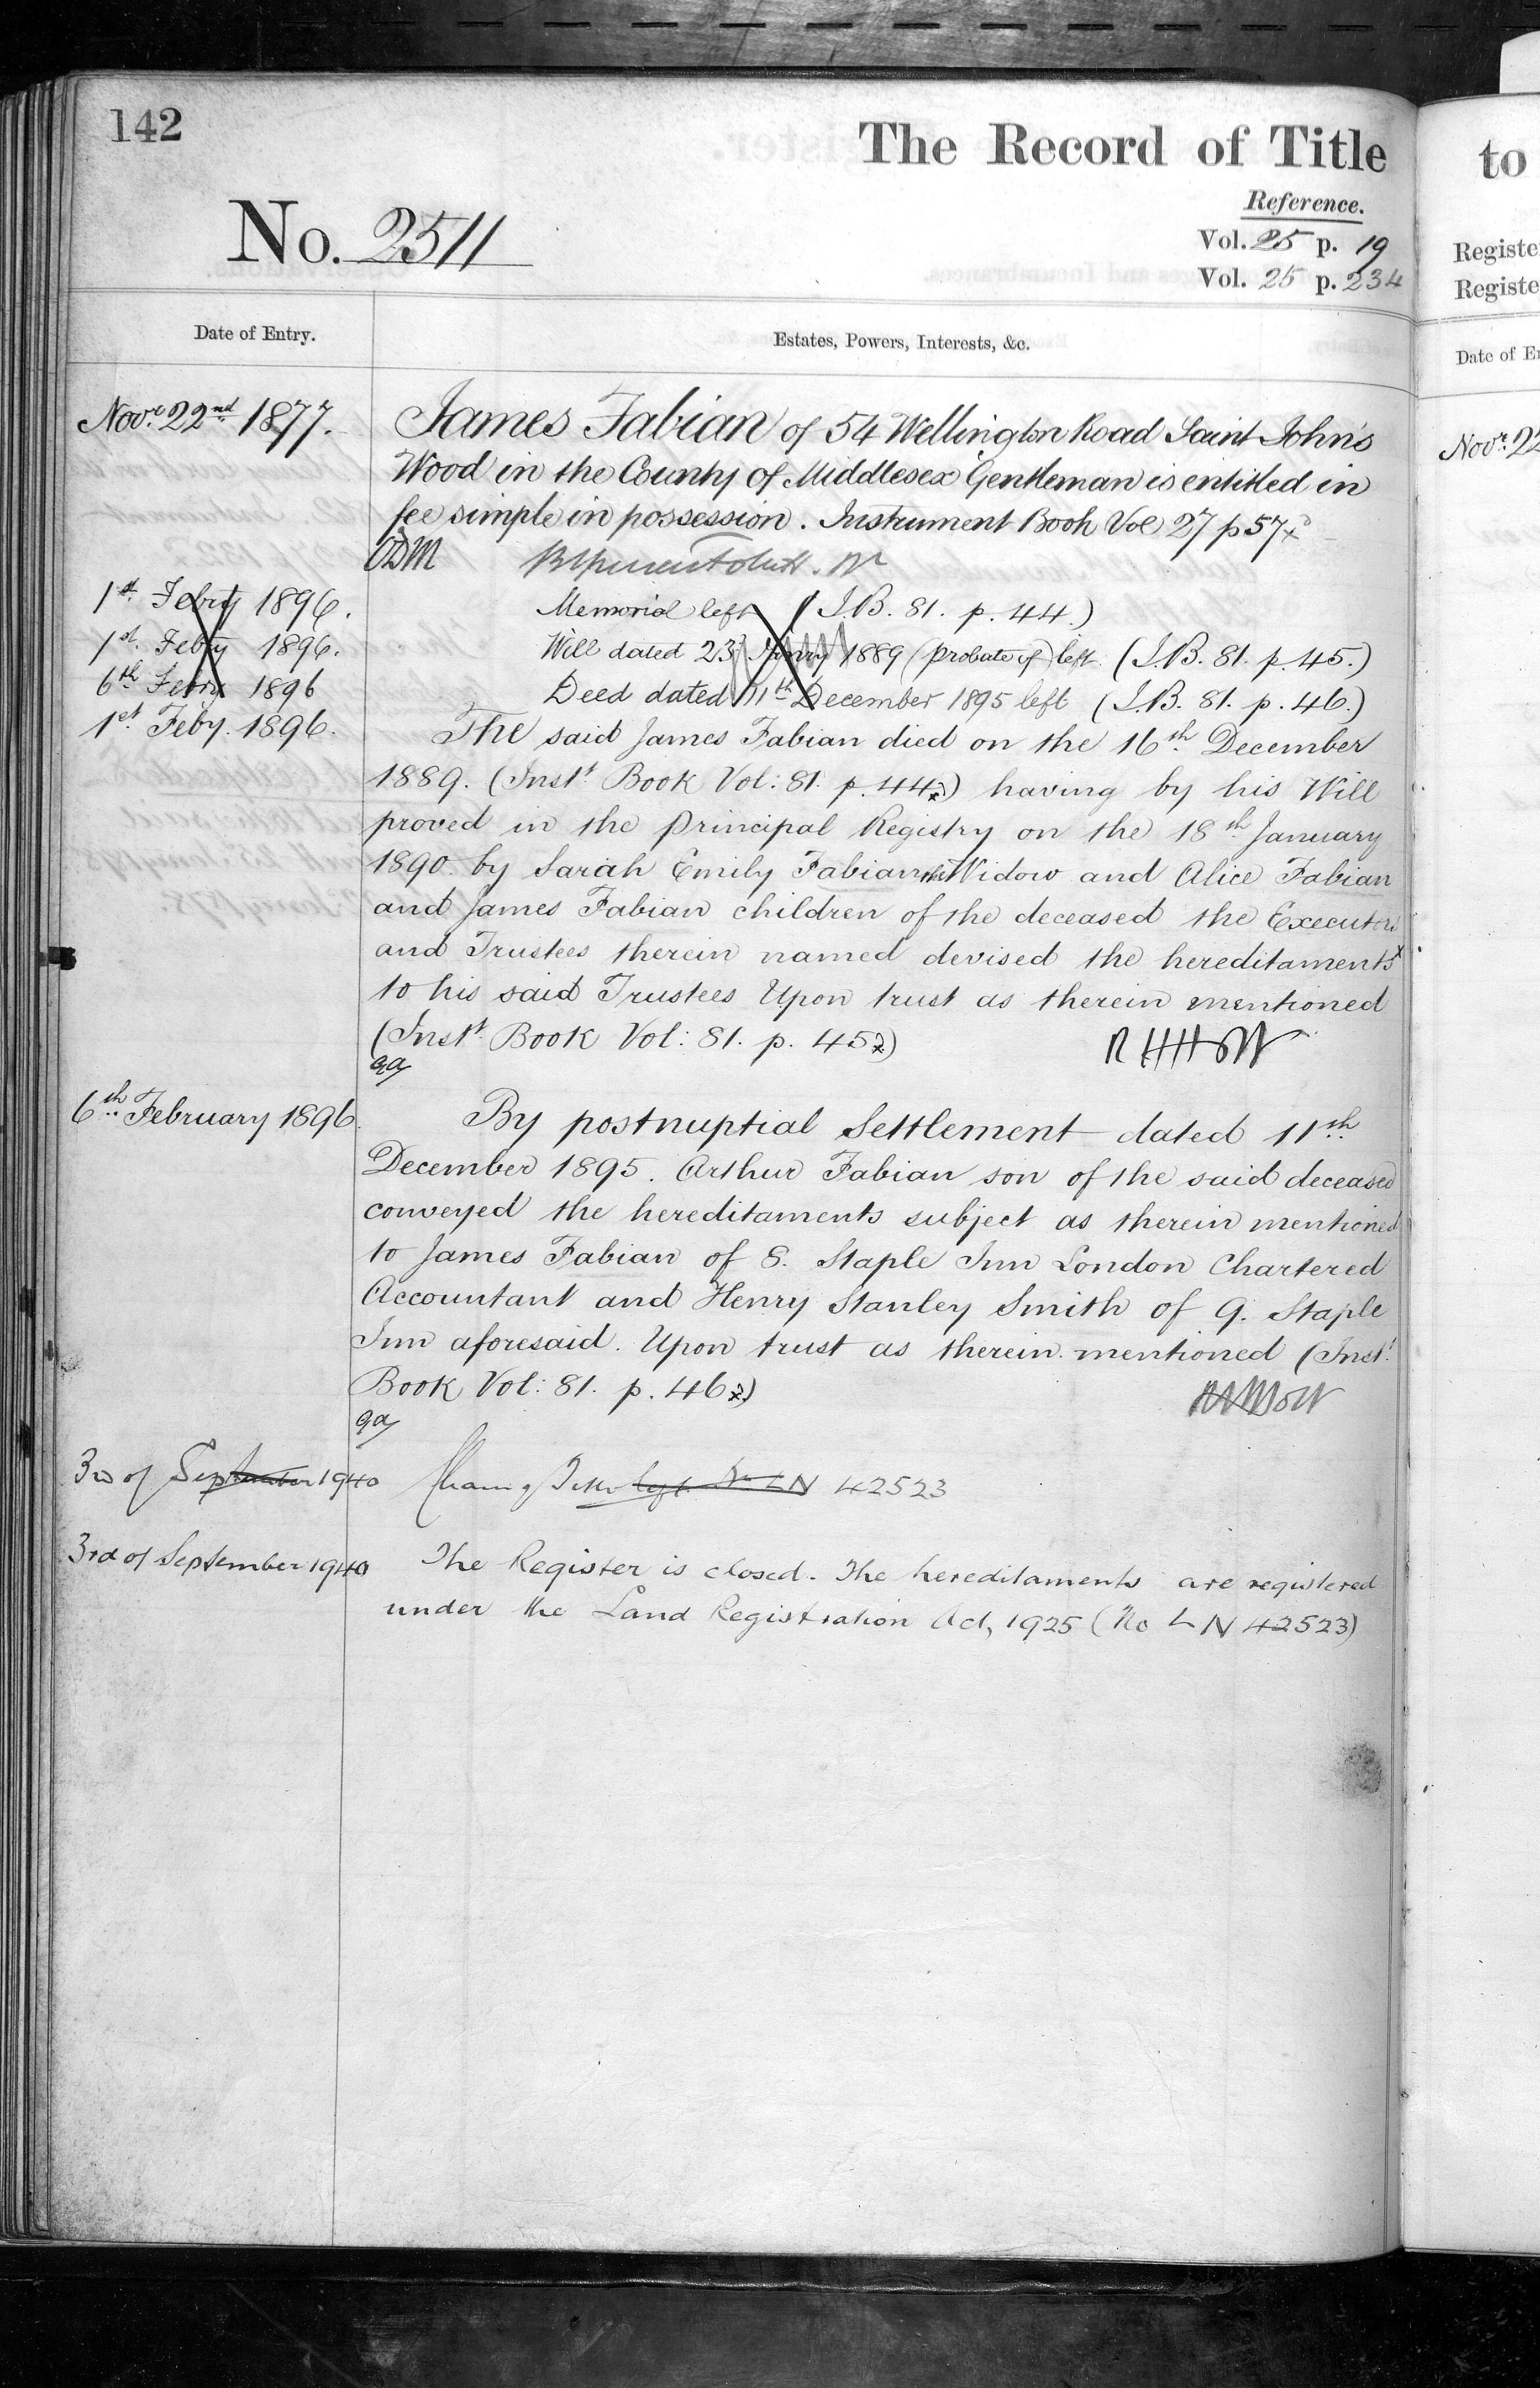 142
The Record of Title
Reference.
No. 2511
Vol. 25 p. 19
Vol. 25 p. 234
Date of Entry.
Estates, Powers, Interests, &c.
Novr. 22nd 1877.
James Fabian of 54 Wellington Road Saint John's
Wood in the County of Middlesex Gentleman is entitled in
fee simple in possession. Instrument Book Vol 27 p 57
ODM
1st Febry 1896.
Memorial left (I.B. 81. p. 44.)
1st Febry 1896.
Will dated 23rd Janry 1889 (probate of) left. (I.B. 81. p. 45.)
6th Febry 1896
Deed dated 11th December 1895 left (I.B. 81. p. 46.)
1st Feby. 1896.
The said James Fabian died on the 16th December
1889. (Inst. Book Vol: 81. p. 44) having by his Will
proved in the Principal Registry on the 18th January
1890 by Sarah Emily Fabian the Widow and Alice Fabian
and James Fabian children of the deceased the Executors
and Trustees therein named devised the hereditaments
to his said Trustees Upon trust as therein mentioned
(Inst. Book Vol: 81. p. 45)
6th February 1896.
By postnuptial Settlement dated 11th
December 1895. Arthur Fabian son of the said deceased
conveyed the hereditaments subject as therein mentioned
to James Fabian of 8. Staple Inn London Chartered
Accountant and Henry Stanley Smith of 9. Staple
Inn aforesaid. Upon trust as therein mentioned (Inst.
Book Vol: 81. p. 46)
3rd of September 1940
LN 42523
3rd of September 1940
The Register is closed. The hereditaments are registered
under the Land Registration Act, 1925 (No LN 42523)
to
Registe
Registe
Date of E
Novr. 22